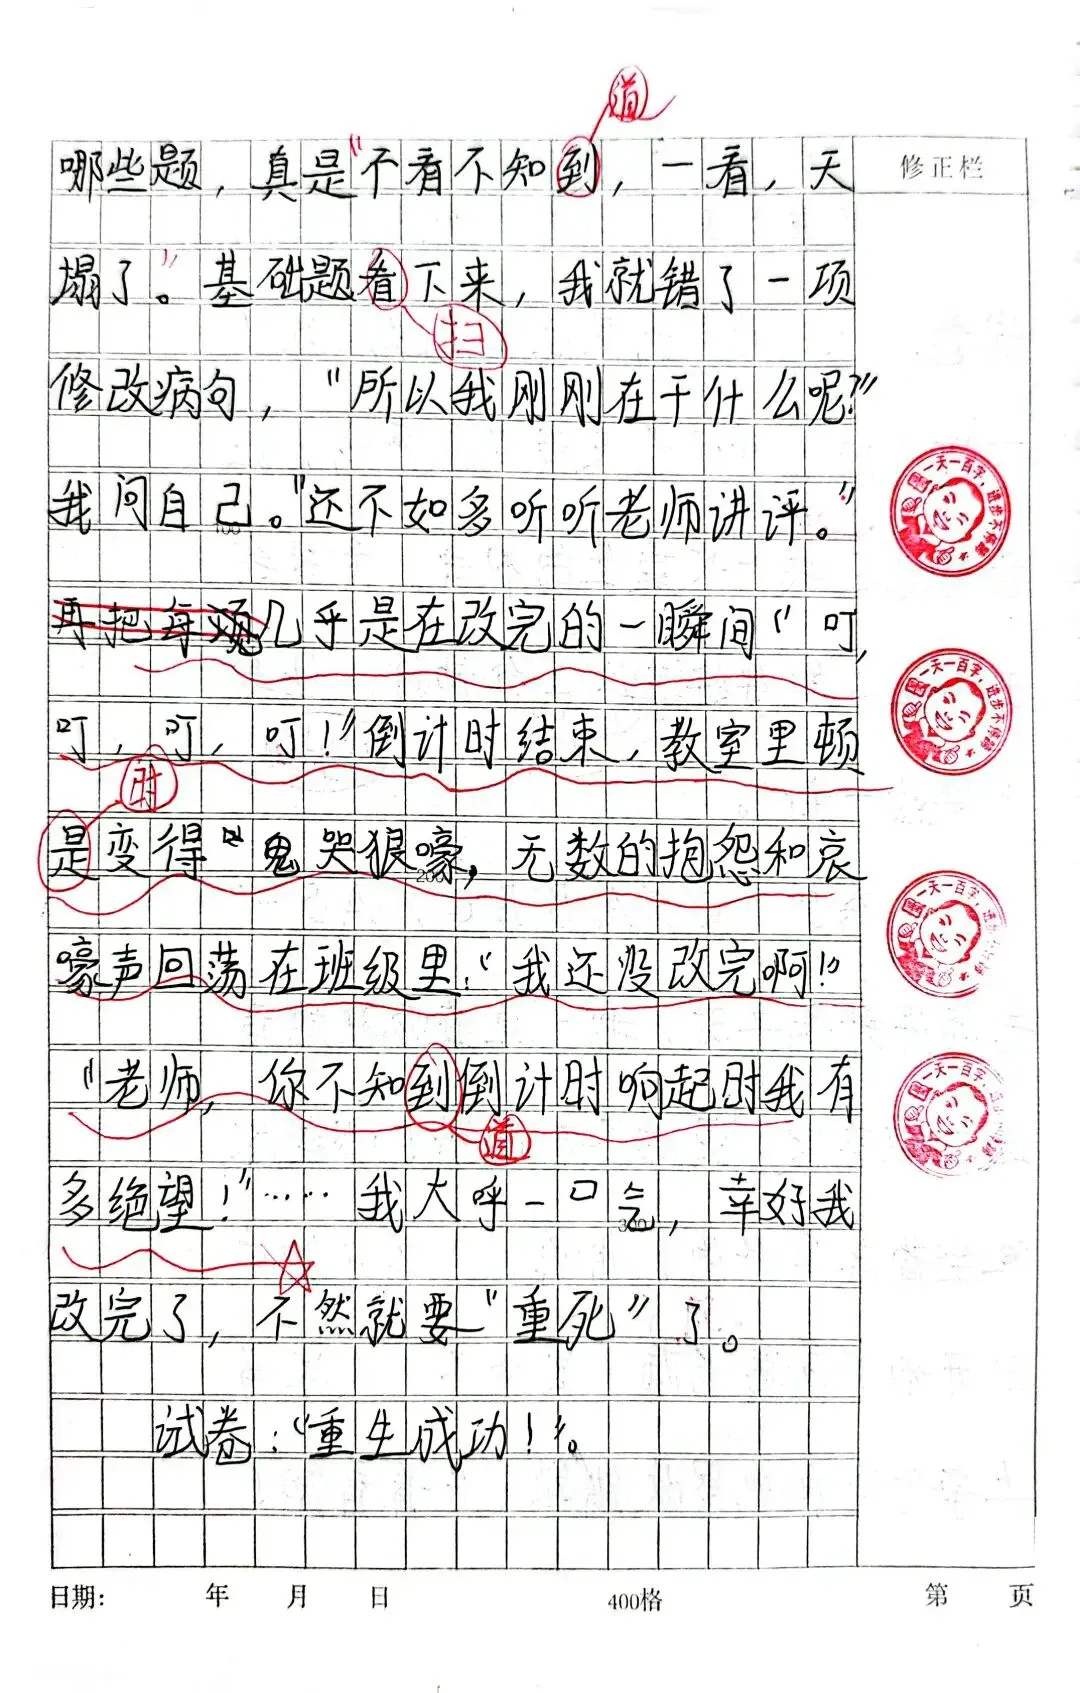 道
哪些题，真是“不看不知到，一看，天
修正栏
塌了。”基础题看下来，我就错了一项
扫
修改病句，“所以我刚刚在干什么呢？”
我问自己。“还不如多听听老师讲评。”
100
一天一百字，进步不停蹄
再把每项几乎是在改完的一瞬间“叮，
一天一百字，进步不停蹄
叮，叮，叮！”倒计时结束，教室里顿
时
是变得“鬼哭狼嚎，无数的抱怨和哀
200
一天一百字，进步不停蹄
嚎声回荡在班级里：“我还没改完啊！”
“老师，你不知到倒计时响起时我有
一天一百字，进步
道
多绝望！”……我大呼一口气，幸好我
300
改完了，不然就要“重死”了。
试卷：“重生成功！”。
日期： 年 月 日 400格 第 页